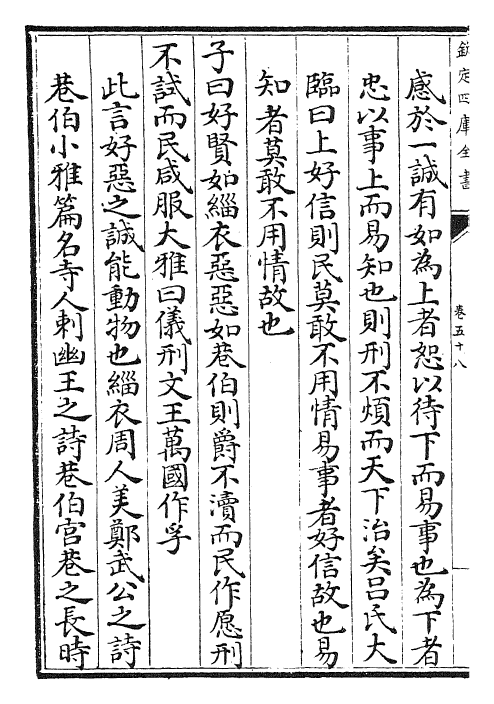 欽定四庫全書
卷五十八
感於一誠有如為上者恕以待下而易事也為下者
忠以事上而易知也則刑不煩而天下治矣吕氏大
臨曰上好信則民莫敢不用情易事者好信故也易
知者莫敢不用情故也
子曰好賢如緇衣惡惡如巷伯則爵不瀆而民作愿刑
不試而民咸服大雅曰儀刑文王萬國作孚
此言好惡之誠能動物也緇衣周人美鄭武公之詩
巷伯小雅篇名寺人刺幽王之詩巷伯宫巷之長時